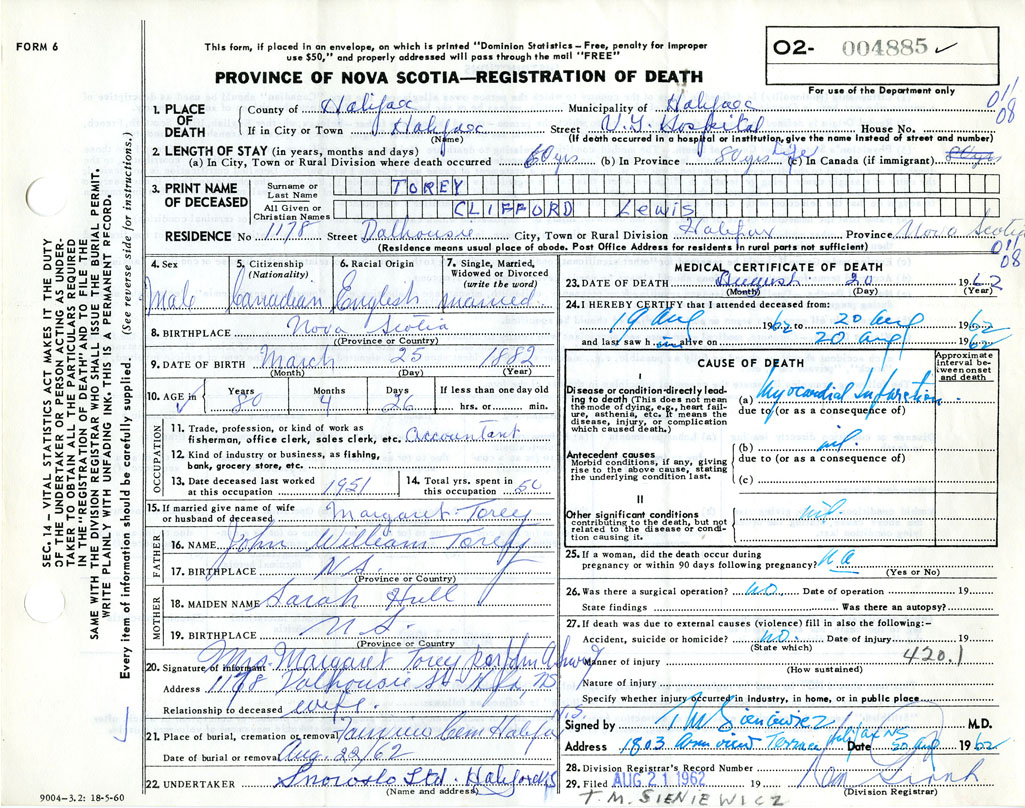 FORM 6
This form, if placed in an envelope, on which is printed "Dominion Statistics—Free, penalty for improper
use $50," and properly addressed will pass through the mail "FREE"
PROVINCE OF NOVA SCOTIA—REGISTRATION OF DEATH
02- 004885 ✓
For use of the Department only
01/08
1. PLACE OF DEATH
County of Halifax Municipality of Halifax
If in City or Town Halifax Street V.G. Hospital House No.
(Name) (If death occurred in hospital or institution, give the name instead of street and number)
2. LENGTH OF STAY (in years, months and days)
(a) In City, Town or Rural Division where death occurred 60 yrs (b) In Province 80 yrs Life (c) In Canada (if immigrant) 80 yrs
3. PRINT NAME OF DECEASED
Surname or Last Name TOREY
All Given or Christian Names CLIFFORD Lewis
RESIDENCE No 1178 Street Dalhousie City, Town or Rural Division Halifax Province Nova Scotia
(Residence means usual place of abode. Post Office Address for residents in rural parts not sufficient)
01/08
4. Sex Male
5. Citizenship (Nationality) Canadian
6. Racial Origin English
7. Single, Married, Widowed or Divorced (write the word) married
8. BIRTHPLACE Nova Scotia
(Province or Country)
9. DATE OF BIRTH March 25 1882
(Month) (Day) (Year)
10. AGE in Years 80 Months 4 Days 26 If less than one day old hrs. or min.
OCCUPATION
11. Trade, profession, or kind of work as fisherman, office clerk, sales clerk, etc. Accountant
12. Kind of industry or business, as fishing, bank, grocery store, etc.
13. Date deceased last worked at this occupation 1951
14. Total yrs. spent in this occupation 50
15. If married give name of wife or husband of deceased Margaret Torey
FATHER
16. NAME John William Torey
17. BIRTHPLACE N.S.
(Province or Country)
MOTHER
18. MAIDEN NAME Sarah Hull
19. BIRTHPLACE N.S.
(Province or Country)
20. Signature of informant Mrs. Margaret Torey per John A Snow
Address 1178 Dalhousie St Hfx, NS
Relationship to deceased wife.
21. Place of burial, cremation or removal Cem Halifax N.S.
Date of burial or removal Aug. 22/62
22. UNDERTAKER Snows Ltd. Halifax NS
(Name and address)
9004-3.2: 18-5-60
MEDICAL CERTIFICATE OF DEATH
23. DATE OF DEATH August 20 1962
(Month) (Day) (Year)
24. I HEREBY CERTIFY that I attended deceased from:
19 Aug 1962 to 20 Aug 1962
and last saw him alive on 20 Aug 1962
CAUSE OF DEATH
Approximate interval between onset and death
I
Disease or condition directly leading to death (This does not mean the mode of dying, e.g., heart failure, asthenia, etc. It means the disease, injury, or complication which caused death.)
(a) Myocardial Infarction
due to (or as a consequence of)
Antecedent causes
Morbid conditions, if any, giving rise to the above cause, stating the underlying condition last.
(b) nil
due to (or as a consequence of)
(c)
II
Other significant conditions contributing to the death, but not related to the disease or condition causing it.
nil.
25. If a woman, did the death occur during pregnancy or within 90 days following pregnancy? NA
(Yes or No)
26. Was there a surgical operation? no. Date of operation 19
State findings Was there an autopsy?
27. If death was due to external causes (violence) fill in also the following:—
Accident, suicide or homicide? no. Date of injury 19
(State which)
420.1
Manner of injury
(How sustained)
Nature of injury
Specify whether injury occurred in industry, in home, or in public place
Signed by T M Sieniewicz M.D.
Address 1803 Armview Terrace Halifax NS Date 20 Aug 1962
28. Division Registrar's Record Number
29. Filed AUG 21 1962 19
(Division Registrar)
T.M. SIENIEWICZ
SEC. 14—VITAL STATISTICS ACT MAKES IT THE DUTY
OF THE UNDERTAKER OR PERSON ACTING AS UNDERTAKER
TO OBTAIN ALL THE PARTICULARS REQUIRED
IN THE "REGISTRATION OF DEATH" AND TO FILE THE
SAME WITH THE DIVISION REGISTRAR WHO SHALL ISSUE THE BURIAL PERMIT.
WRITE PLAINLY WITH UNFADING INK. THIS IS A PERMANENT RECORD.
Every item of information should be carefully supplied. (See reverse side for instructions.)